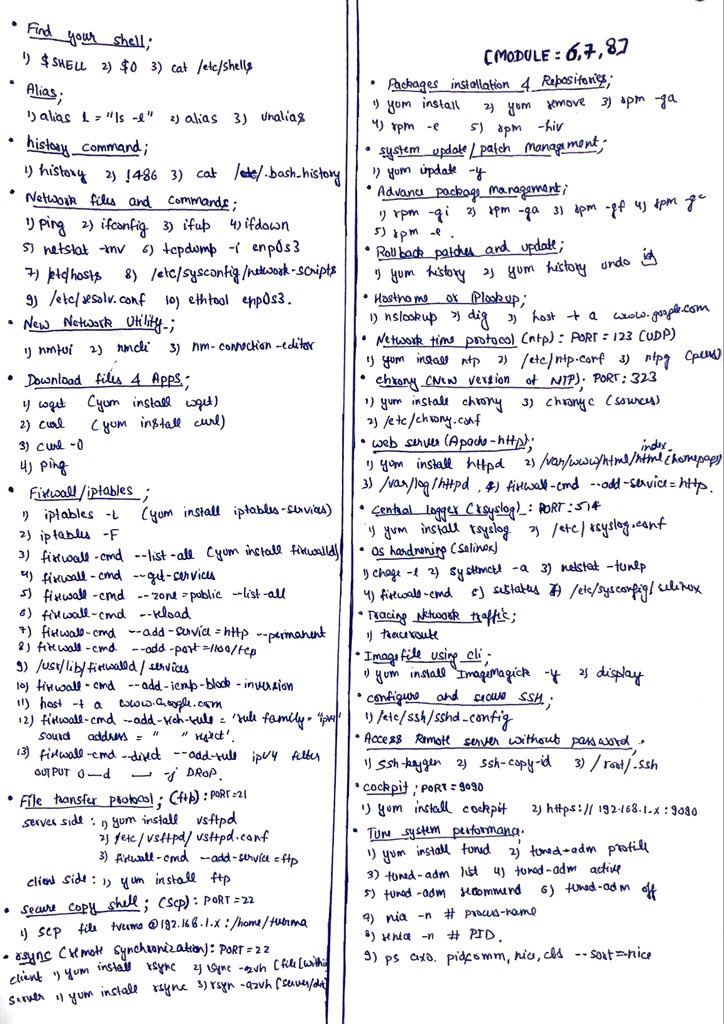 • Find your shell;
1) $SHELL 2) $0 3) cat /etc/shells
• Alias;
1) alias l = "ls -l" 2) alias 3) unalias
• history command;
1) history 2) !486 3) cat /etc/.bash_history
• Network files and commands;
1) ping 2) ifconfig 3) ifup 4) ifdown
5) netstat -rnv 6) tcpdump -i enp0s3
7) /etc/hosts 8) /etc/sysconfig/network-scripts
9) /etc/resolv.conf 10) ethtool enp0s3.
• New Network Utility;
1) nmtui 2) nmcli 3) nm-connection-editor
• Download files & Apps;
1) wget (yum install wget)
2) curl (yum install curl)
3) curl -O
4) ping
• Firewall/iptables;
1) iptables -L (yum install iptables-services)
2) iptables -F
3) firewall-cmd --list-all (yum install firewalld)
4) firewall-cmd --get-services
5) firewall-cmd --zone=public --list-all
6) firewall-cmd --reload
7) firewall-cmd --add-service=http --permanent
8) firewall-cmd --add-port=1100/tcp
9) /usr/lib/firewalld/services
10) firewall-cmd --add-icmp-block-inversion
11) host -t a www.Google.com
12) firewall-cmd --add-rich-rule = 'rule family="ipv4"
source address = " " reject'.
13) firewall-cmd --direct --add-rule ipv4 filter
OUTPUT 0 -d -j DROP.
• File transfer protocol; (ftp): PORT=21
server side: 1) yum install vsftpd
2) /etc/vsftpd/vsftpd.conf
3) firewall-cmd --add-service=ftp
client side: 1) yum install ftp
• secure copy shell; (scp): PORT=22
1) scp file tverma@192.168.1.x:/home/tverma
• rsync (remote synchronization): PORT=22
client 1) yum install rsync 2) rsync -azvh (file
server 1) yum install rsync 3) rsyn -azvh (server/
[MODULE = 6,7,8]
• Packages installation & Repositories;
1) yum install 2) yum remove 3) rpm -qa
4) rpm -e 5) rpm -hiv
• system update/patch Management;
1) yum update -y
• Advance package management;
1) rpm -qi 2) rpm -qa 3) rpm -qf 4) rpm -qc
5) rpm -e.
• Rollback patches and update;
1) yum history 2) yum history undo id
• Hostname or IPlookup;
1) nslookup 2) dig 3) host -t a www.google.com
• Network time protocol (ntp): PORT=123 (UDP)
1) yum install ntp 2) /etc/ntp.conf 3) ntpq (peers)
• chrony (New version of NTP): PORT:323
1) yum install chrony 3) chronyc (sources)
2) /etc/chrony.conf
• web server (Apache-http);
index
1) yum install httpd 2) /var/www/html/html (homepage)
3) /var/log/httpd, 4) firewall-cmd --add-service=http.
• Central logger (rsyslog): PORT:514
1) yum install rsyslog 2) /etc/rsyslog.conf
• OS hardnening (Selinux)
1) chage -l 2) systemctl -a 3) netstat -tunlp
4) firewall-cmd 5) sestatus 7) /etc/sysconfig/selinux
• Tracing Network traffic;
1) traceroute
• Image file using cli;
1) yum install ImageMagick -y 2) display
• configure and secure SSH;
1) /etc/ssh/sshd_config
• Access Remote server without password.
1) ssh-keygen 2) ssh-copy-id 3) /root/.ssh
• cockpit; PORT=9090
1) yum install cockpit 2) https://192.168.1.x:9090
• Tune system performance.
1) yum install tuned 2) tuned-adm profile
3) tuned-adm list 4) tuned-adm active
5) tuned-adm recommend 6) tuned-adm off
7) nice -n # process-name
8) renice -n # PID.
9) ps axo. pid,comm,nice,cls --sort=-nice